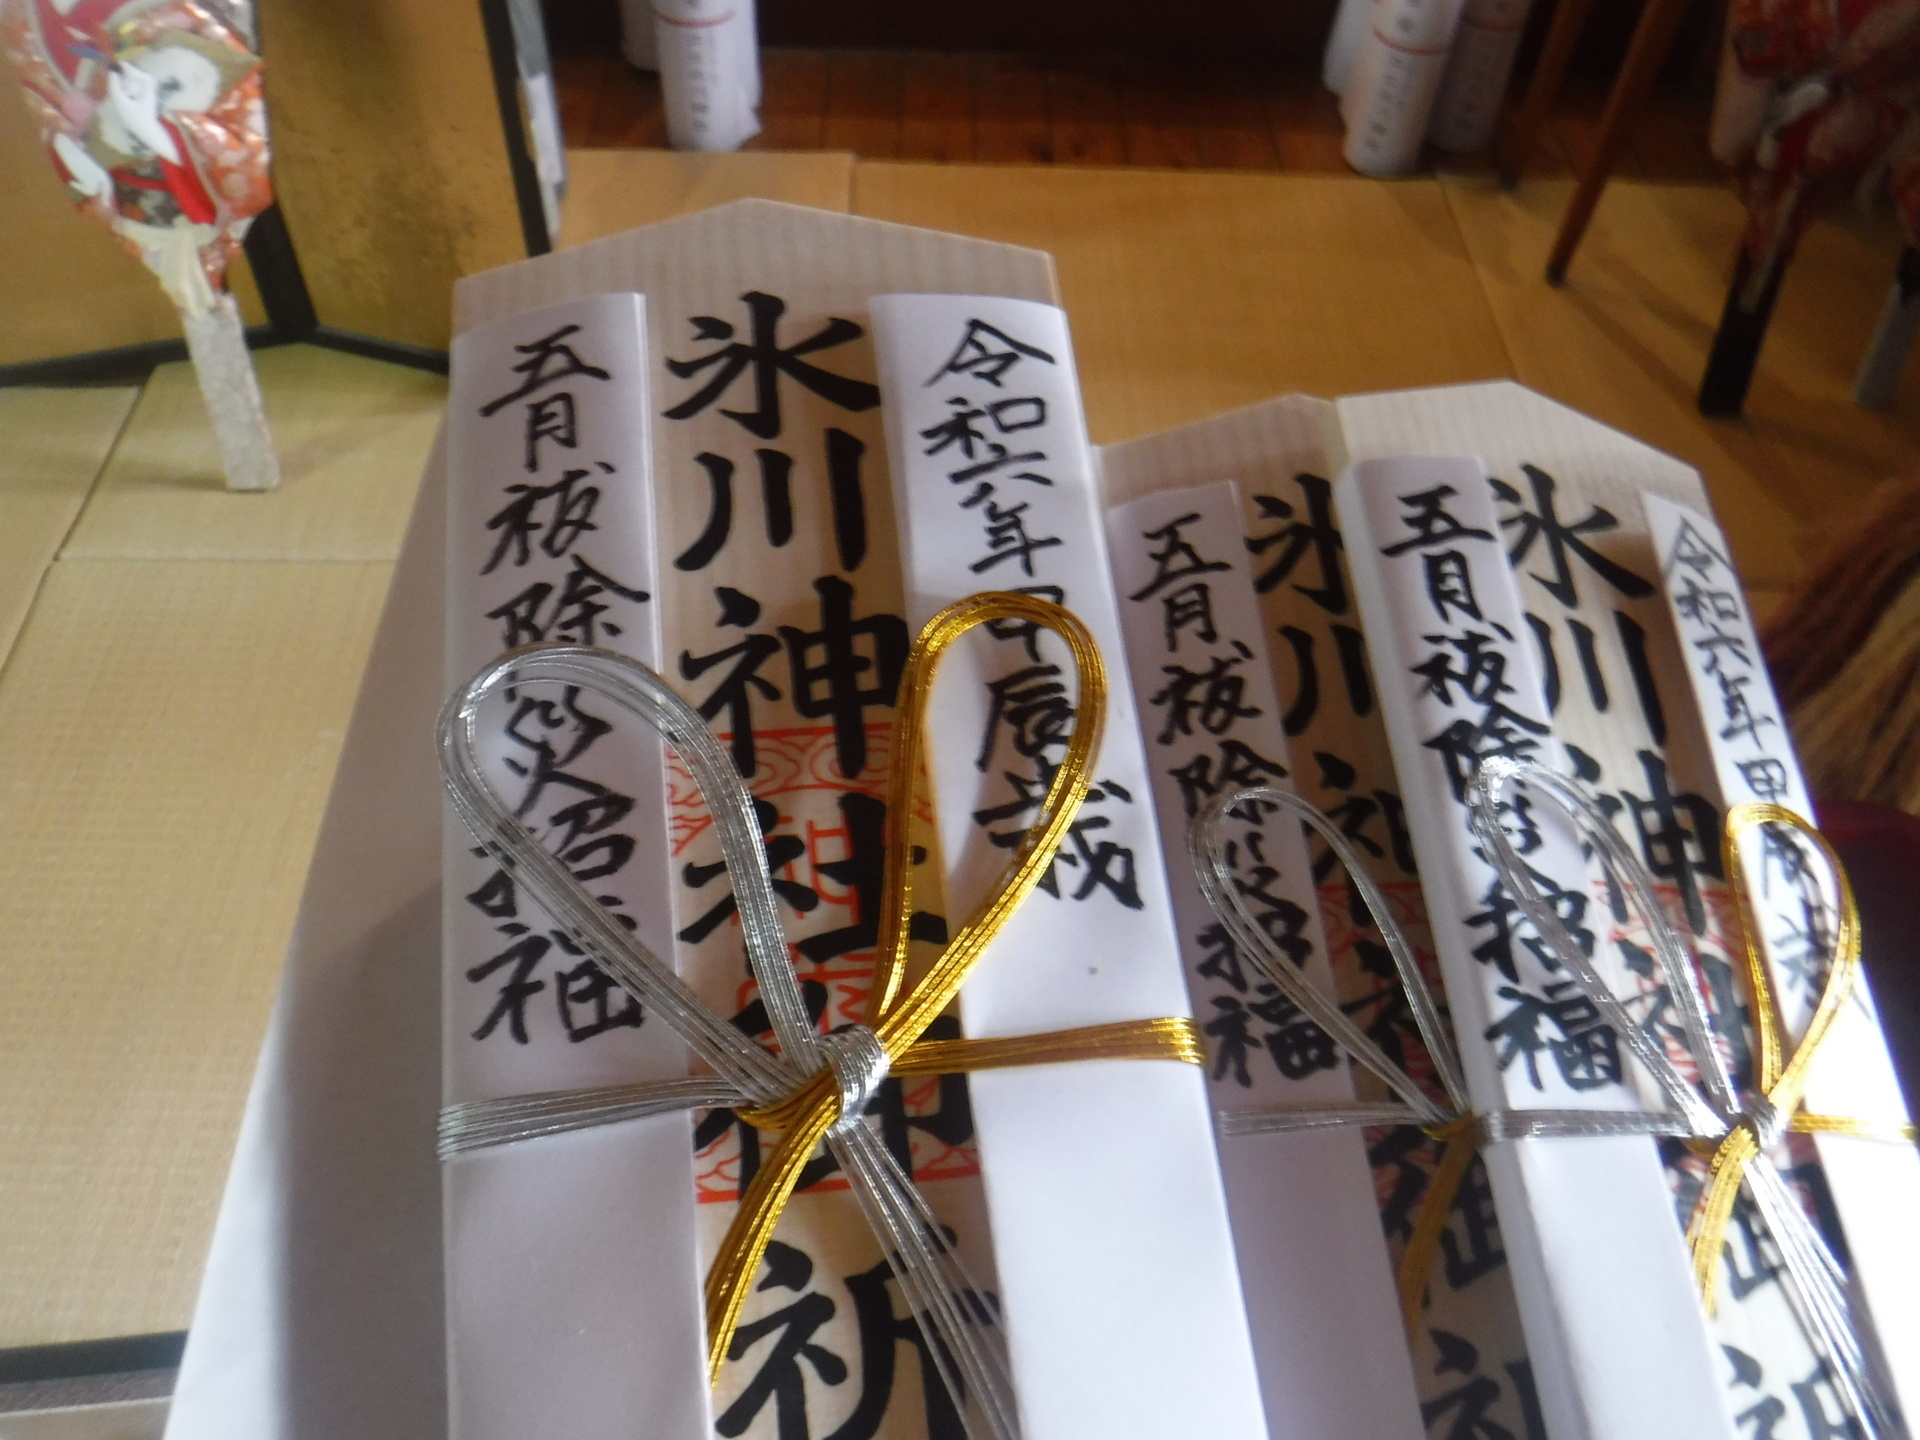 令和六年甲辰歳
氷川神社御祈
五月祓除災招福
令和六年甲辰歳
氷川神社御祈
五月祓除災招福
氷川神社御祈
五月祓除災招福